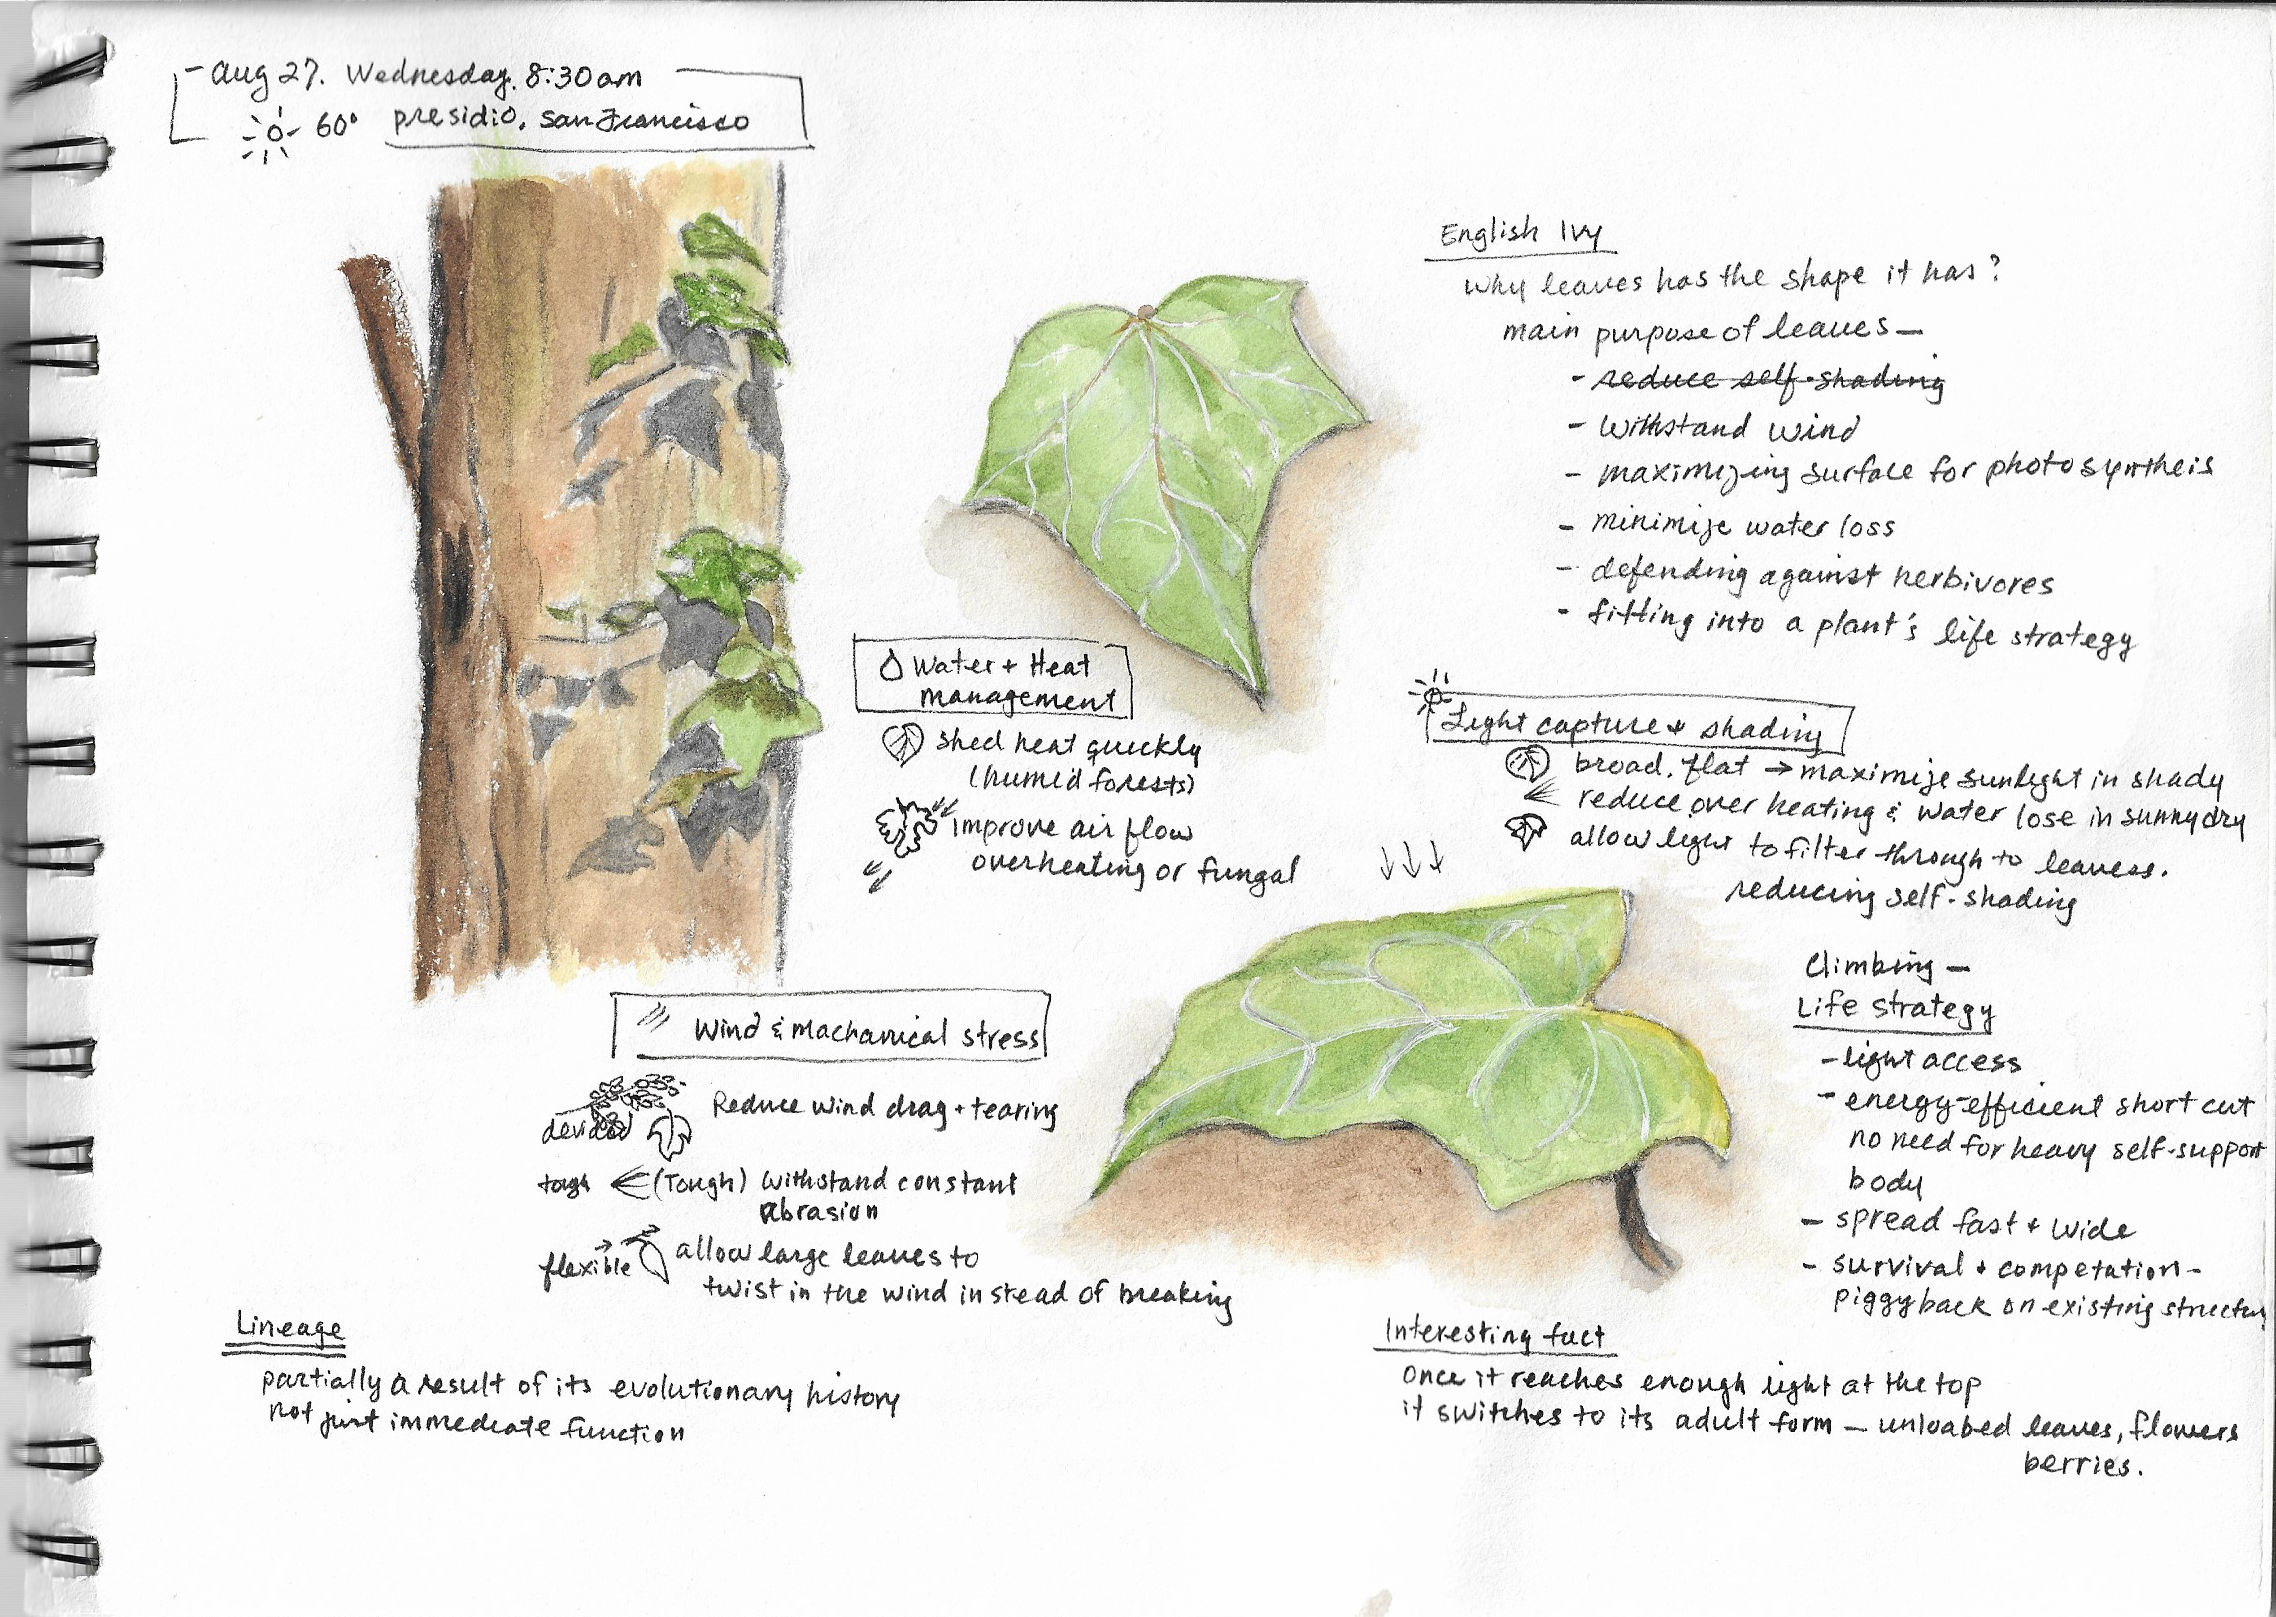 Aug 27. Wednesday. 8:30am
60° presidio, San Francisco
English Ivy
Why leaves has the shape it has?
main purpose of leaves —
- reduce self-shading
- withstand wind
- maximizing surface for photosyntheis
- minimize water loss
- defending against herbivores
- fitting into a plant's life strategy
Water + Heat
management
shed heat quickly
(humid forests)
improve air flow
overheating or fungal
Light capture & shading
broad. flat → maximize sunlight in shady
reduce over heating & water lose in sunny dry
allow light to filter through to leavess.
reducing self-shading
Climbing —
Life strategy
- light access
- energy-efficient short cut
no need for heavy self-support
body
- spread fast + wide
- survival + competation -
piggyback on existing
Wind & machanical stress
devided Reduce wind drag + tearing
tough (Tough) withstand constant
abrasion
flexible allow large leaves to
twist in the wind instead of breaking
Lineage
partially a result of its evolutionary history
not just immediate function
Interesting fact
Once it reaches enough light at the top
it switches to its adult form — unloabed leaves, flowers
berries.